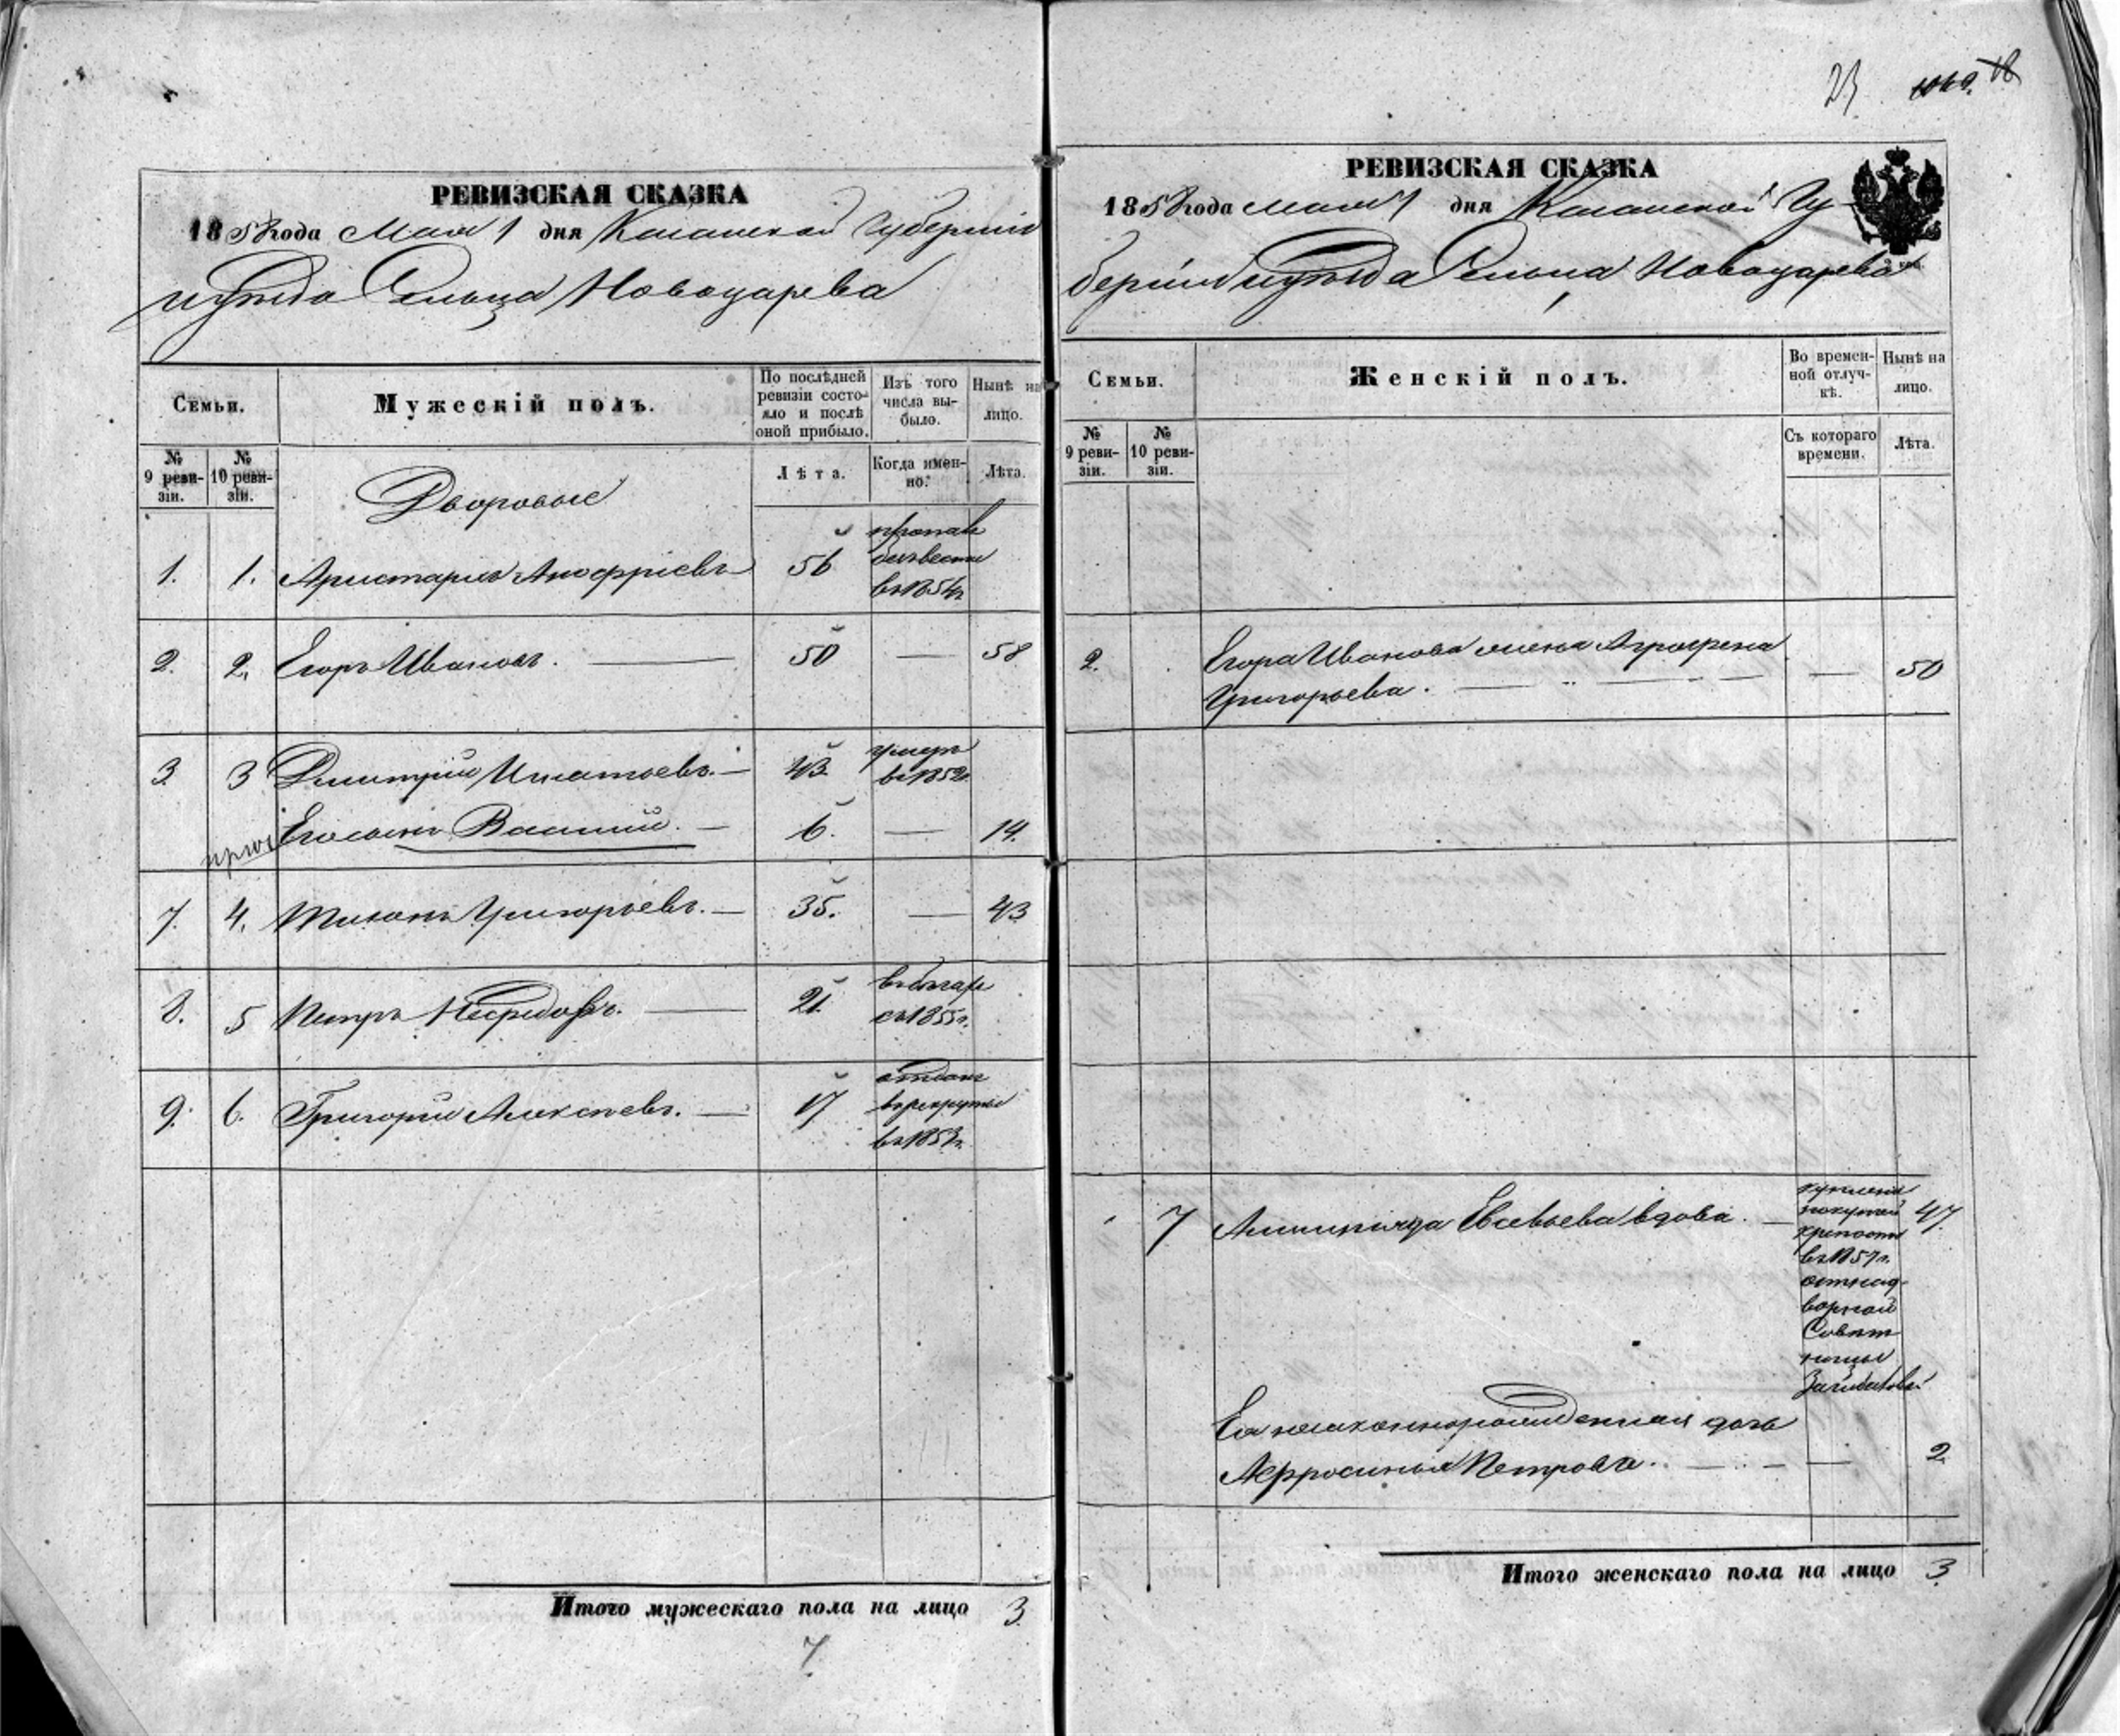 РЕВИЗСКАЯ СКАЗКА
1858 года Мая 1 дня Казанской Губерніи
и уѣзда Сельца Новоцарева
Семьи.
Мужескій полъ.
По послѣдней ревизіи состояло и послѣ оной прибыло.
Изъ того числа выбыло.
Нынѣ на лицо.
№ 9 ревизіи.
№ 10 ревизіи.
Дворовые
Лѣта.
Когда именно.
Лѣта.
1. 1. Аристархъ 56 пропалъ безъ вести въ 1854 г.
2. 2. Егоръ Ивановъ. 50 — 58
3 3 Дмитрий Игнатьевъ. — 43. умеръ въ 1852 г.
Его сынъ Василий. — 6. — 14.
7. 4. Тихонъ Григорьевъ. — 35. — 43
8. 5 Петръ Нефедовъ. 21. въ бегах съ 1855 г.
9. 6. Григорий Алексѣевъ. — 17 отданъ въ рекруты въ 1853 г.
Итого мужескаго пола на лицо 3
7
23
РЕВИЗСКАЯ СКАЗКА
1858 года Мая 1 дня Казанской Гу-
берніи и уѣзда Сельца Новоцарева
Семьи.
Женскій полъ.
Во временной отлучкѣ.
Нынѣ на лицо.
№ 9 ревизіи.
№ 10 ревизіи.
Съ котораго времени.
Лѣта.
2. Егора Иванова жена Аграфена
Григорьева. — 50
7 Евсевьева вдова. — 47.
куплена
покупкой
крепости
въ 1857 г.
от над-
ворной
Совѣт
ницы
Ея незаконнорожденная дочь
Афросинья Петрова. — 2.
Итого женскаго пола на лицо 3